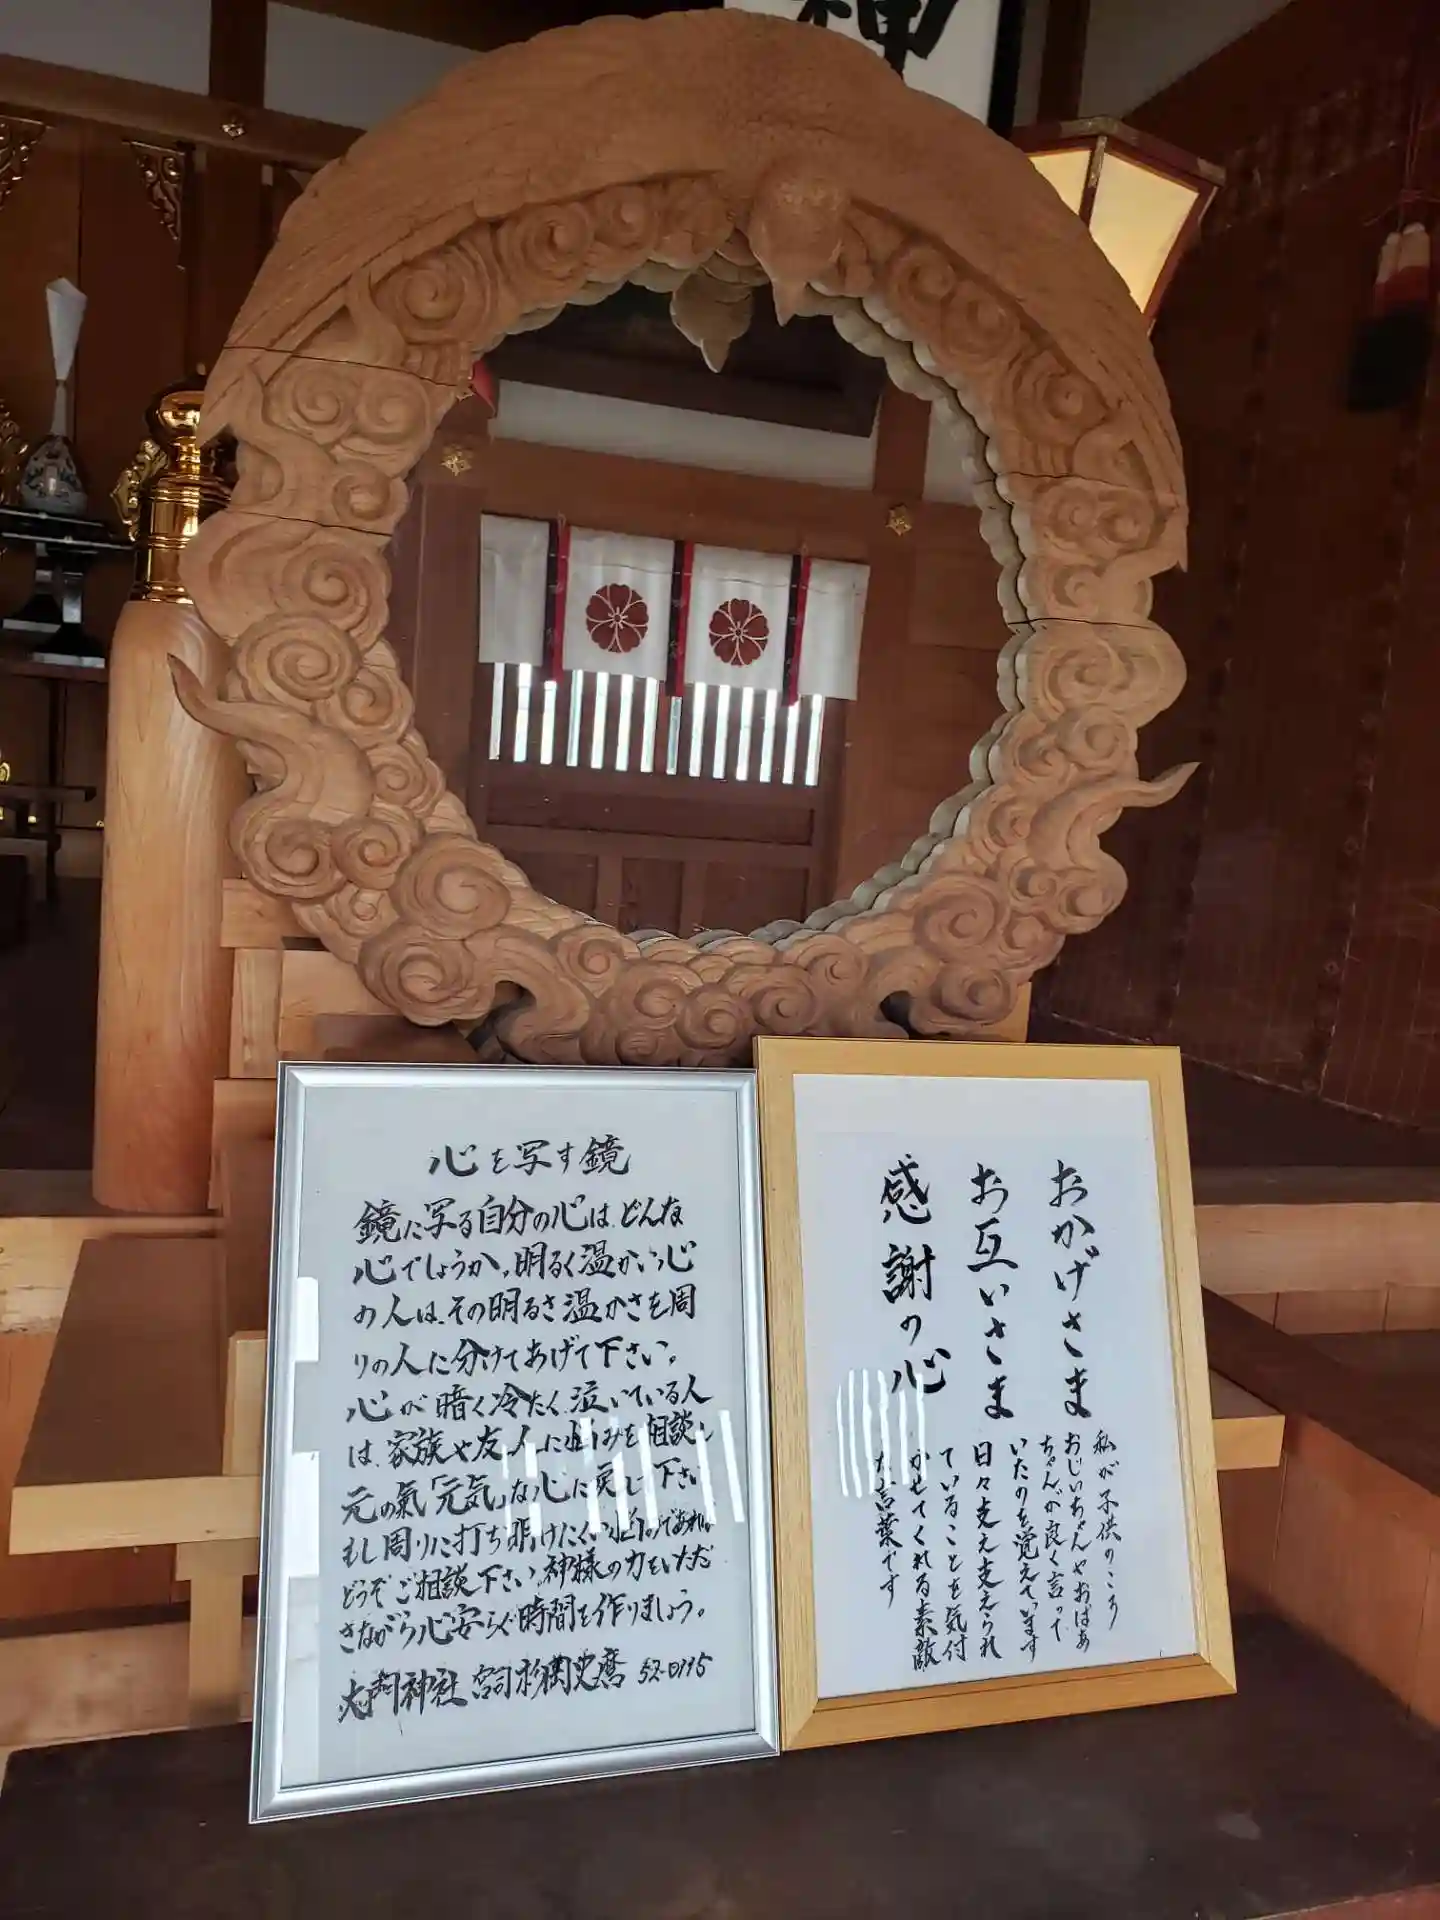 神
心を写す鏡
鏡に写る自分の心は、どんな
心でしょうか。明るく温かい心
の人は、その明るさ温かさを周
りの人に分けてあげて下さい。
心が暗く冷たく、泣いている人
は、家族や友人に悩みを相談し
元の氣「元気」な心に戻して下さい
もし周りに打ち明けたくい悩のであれば
どうぞご相談下さい。神様の力をいただ
きながら心安らぐ時間を作りましょう。
大門神社 宮司 52-0115
おかげさま
お互いさま
感謝の心
私が子供のころ
おじいちゃんやおばあ
ちゃんが良く言って
いたのを覚えています
日々支え支えられ
ていることを気付
かせてくれる素敵
な言葉です